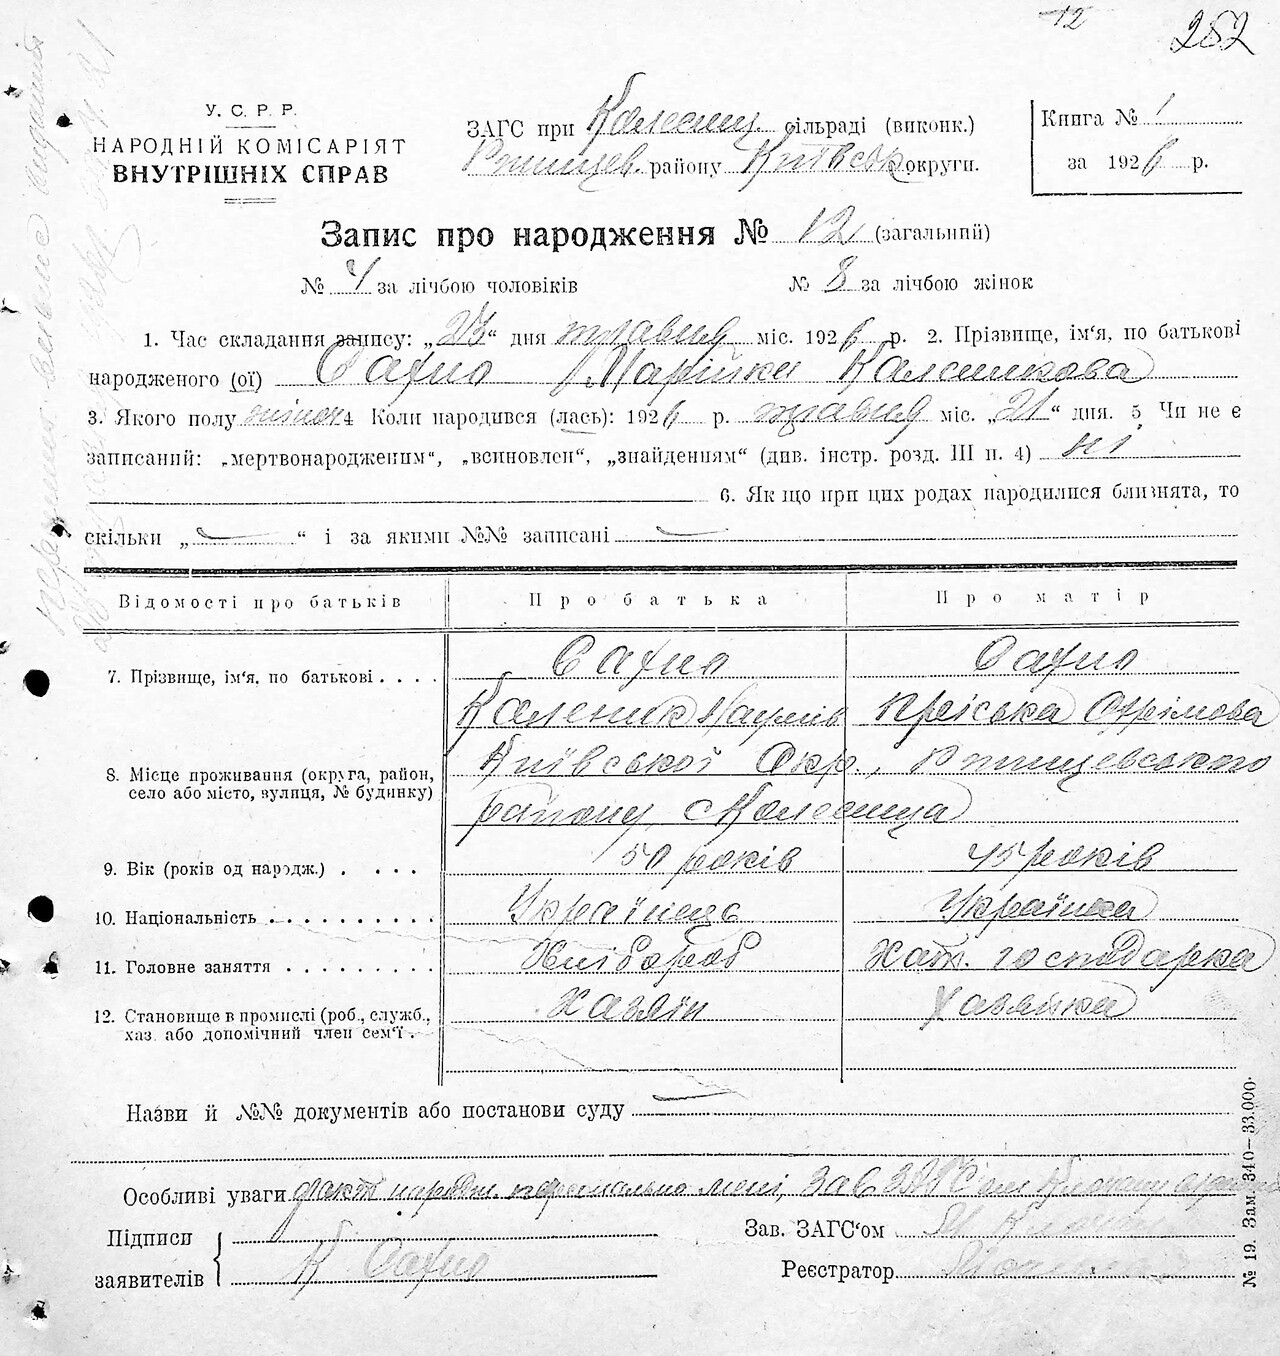 12
252
У. С. Р. Р.
НАРОДНІЙ КОМІСАРІЯТ
ВНУТРІШНІХ СПРАВ
ЗАГС при сільраді (виконк.)
Ртищев. району Київськ округи.
Книга № 1
за 1926 р.
Запис про народження № 12 (загальний)
№ 4 за лічбою чоловіків № 8 за лічбою жінок
1. Час складання запису: „23“ дня травня міс. 1926 р. 2. Прізвище, ім'я, по батькові
народженого (ої) Сахно Марійки Каленикова
3. Якого полу жіноч 4 Коли народився (лась): 1926 р. травня міс. „21“ дня. 5. Чи не є
записаний: „мертвонародженим“, „всиновлен“, „знайденням“ (див. інстр. розд. III п. 4) ні
6. Якщо при цих родах народилися близнята, то
скільки „ — “ і за якими №№ записані —
Відомості про батьків Про батька Про матір
7. Прізвище, ім'я, по батькові . . . . Сахно Сахно
Каленик Наумів Пріська Охрімова
8. Місце проживання (округа, район, село або місто, вулиця, № будинку) Київської Окр., Ртищевського
району, с
9. Вік (років од народж.) . . . . 50 років 45 років
10. Національність . . . . . . . . . . Українець Українка
11. Головне заняття . . . . . . . . . Хлібороб Хатн. господарка
12. Становище в промислі (роб., служб., хаз. або допомічний член сем'ї . Хазяїн Хазяйка
Назви й №№ документів або постанови суду —
Особливі уваги факт народж. персонально мені, Зав ЗАГС'ом
Підписи
заявителів К Сахно
Зав. ЗАГС'ом
Реєстратор
№ 19. Зам. 340—33.000.